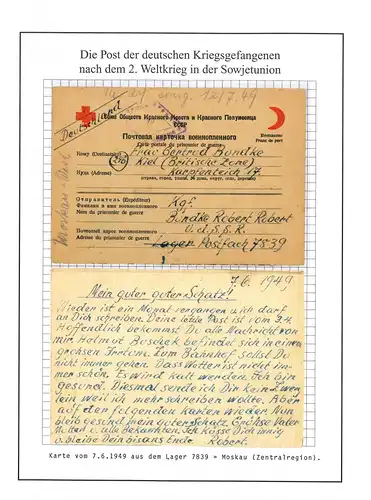 Die Post der deutschen Kriegsgefangenen
nach dem 2. Weltkrieg in der Sowjetunion
12/7.49
Deutschland
Союз Обществ Красного Креста и Красного Полумесяца
СССР
Почтовая карточка военнопленного
Carte postale du prisonnier de guerre
Бесплатно
Franc de port
Кому (Destinataire) Frau Gertrud Bündke
Kiel (Britische Zone)
Куда (Adresse) Karpfenteich 17
Отправитель (Expéditeur)
Фамилия и имя военнопленного Kgf.
Nom du prisonnier de guerre Bündke Robert Robert
Почтовый адрес военнопленного U.d.S.S.R.
Adresse du prisonnier de guerre Lager Postfach 7839
Moskau
7.6.1949
Mein guter guter Schatz!!
Wieder ist ein Monat vergangen u. ich darf
an Dich schreiben. Deine letzte Post ist vom 2.4.
Hoffendlich bekommst Du alle Nachricht von
mir. Helmut Buschek befindet sich in einem
grohsen Irrtum. Zum Bahnhof sollst Du
nicht immer gehen. Das Wetter ist nicht im-
mer schön. Es wird kalt werden. Ich bin
gesund. Diesmal sende ich Dir kein
lein weil ich mehr schreiben wollte. Aber
auf den folgenden Karten wieder. Nun
bleib gesund mein guter Schatz. Grühse Vater
Mutter u. alle Bekannten. Ich küsse Dich innig
u. bleibe Dein bis ans Ende Robert.
Karte vom 7.6.1949 aus dem Lager 7839 = Moskau (Zentralregion).